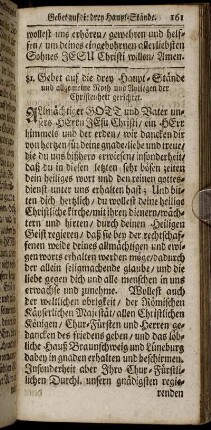 Gebet auf die drey Haupt-Stände. 161
wollest uns erhören/ gewehren und helf-
fen/ um deines eingebohrnen allerliebsten
Sohnes JESU Christi willen/ Amen.
31. Gebet auf die drey Haupt-Stände
und allgemeine Noth und Anligen der
Christenheit gerichtet.
Allmächtiger GOTT und Vater un-
sers HErrn JEsu Christi/ ein HErr
himmels und der erden/ wir dancken dir
von hertzen/ für deine gnade/ liebe und treue/
die du uns bißhero erwiesen/ insonderheit/
daß du in diesen letzten sehr bösen zeiten
dein heiliges wort und den reinen gottes-
dienst unter uns erhalten hast: Und bit-
ten dich hertzlich/ du wollest deine heilige
Christliche kirche/ mit ihren dienern/ wäch-
tern und hirten/ durch deinen Heiligen
Geist regieren/ daß sie bey der rechtschaf-
fenen weide deines allmächtigen und ewi-
gen worts erhalten werden möge/ dadurch
der allein seligmachende glaube/ und die
liebe gegen dich und alle menschen in uns
erwachse und zunehme. Wollest auch
der weltlichen obrigkeit/ der Römischen
Käyserlichen Majestät/ allen Christlichen
Königen/ Chur-Fürsten und Herren ge-
dancken des friedens geben/ und das löb-
liche Hauß Braunschweig und Lüneburg
dabey in gnaden erhalten und beschirmen.
Insonderheit aber Ihro Chur-Fürstli-
chen Durchl. unsern gnädigsten regie-
renden